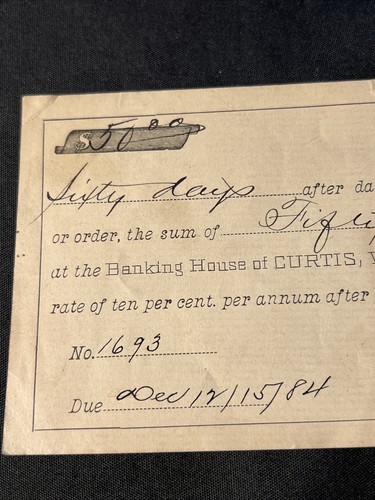 $50 00
Sixty days after da
or order, the sum of Fifty
at the Banking House of CURTIS,
rate of ten per cent. per annum after
No. 1693
Due Dec 12/15/84